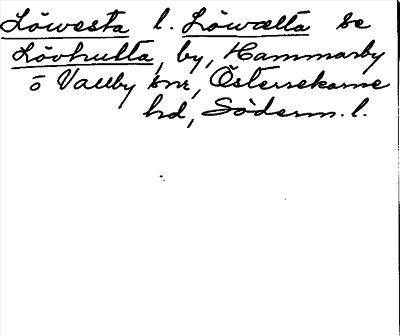 Löwesta l. Löwætta se
Lövhulta, by, Hammarby
o Vallby snr, Österrekarne
hd, Söderm. l.